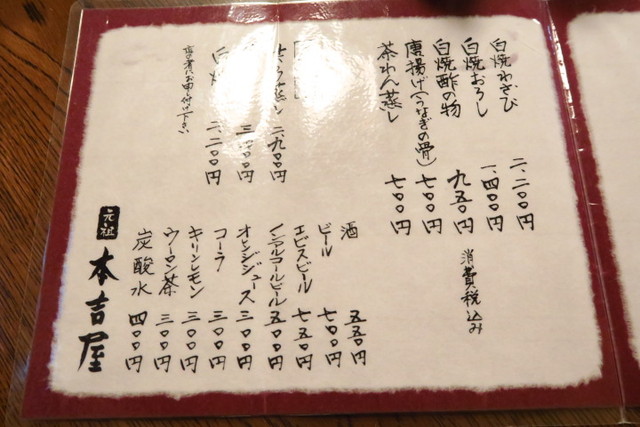 白焼わさび 二、二〇〇円
白焼おろし 一、四〇〇円
白焼酢の物 九五〇円
唐揚げ(うなぎの骨) 七〇〇円
茶わん蒸し 七〇〇円
消費税込み
せいろ蒸し 二、九〇〇円
二、二〇〇円
店の者にお申し付け下さい
酒 五五〇円
ビール 七〇〇円
エビスビール 七五〇円
ノンアルコールビール 五〇〇円
オレンジジュース 三〇〇円
コーラ 三〇〇円
キリンレモン 三〇〇円
ウーロン茶 三〇〇円
炭酸水 四〇〇円
元祖
本吉屋